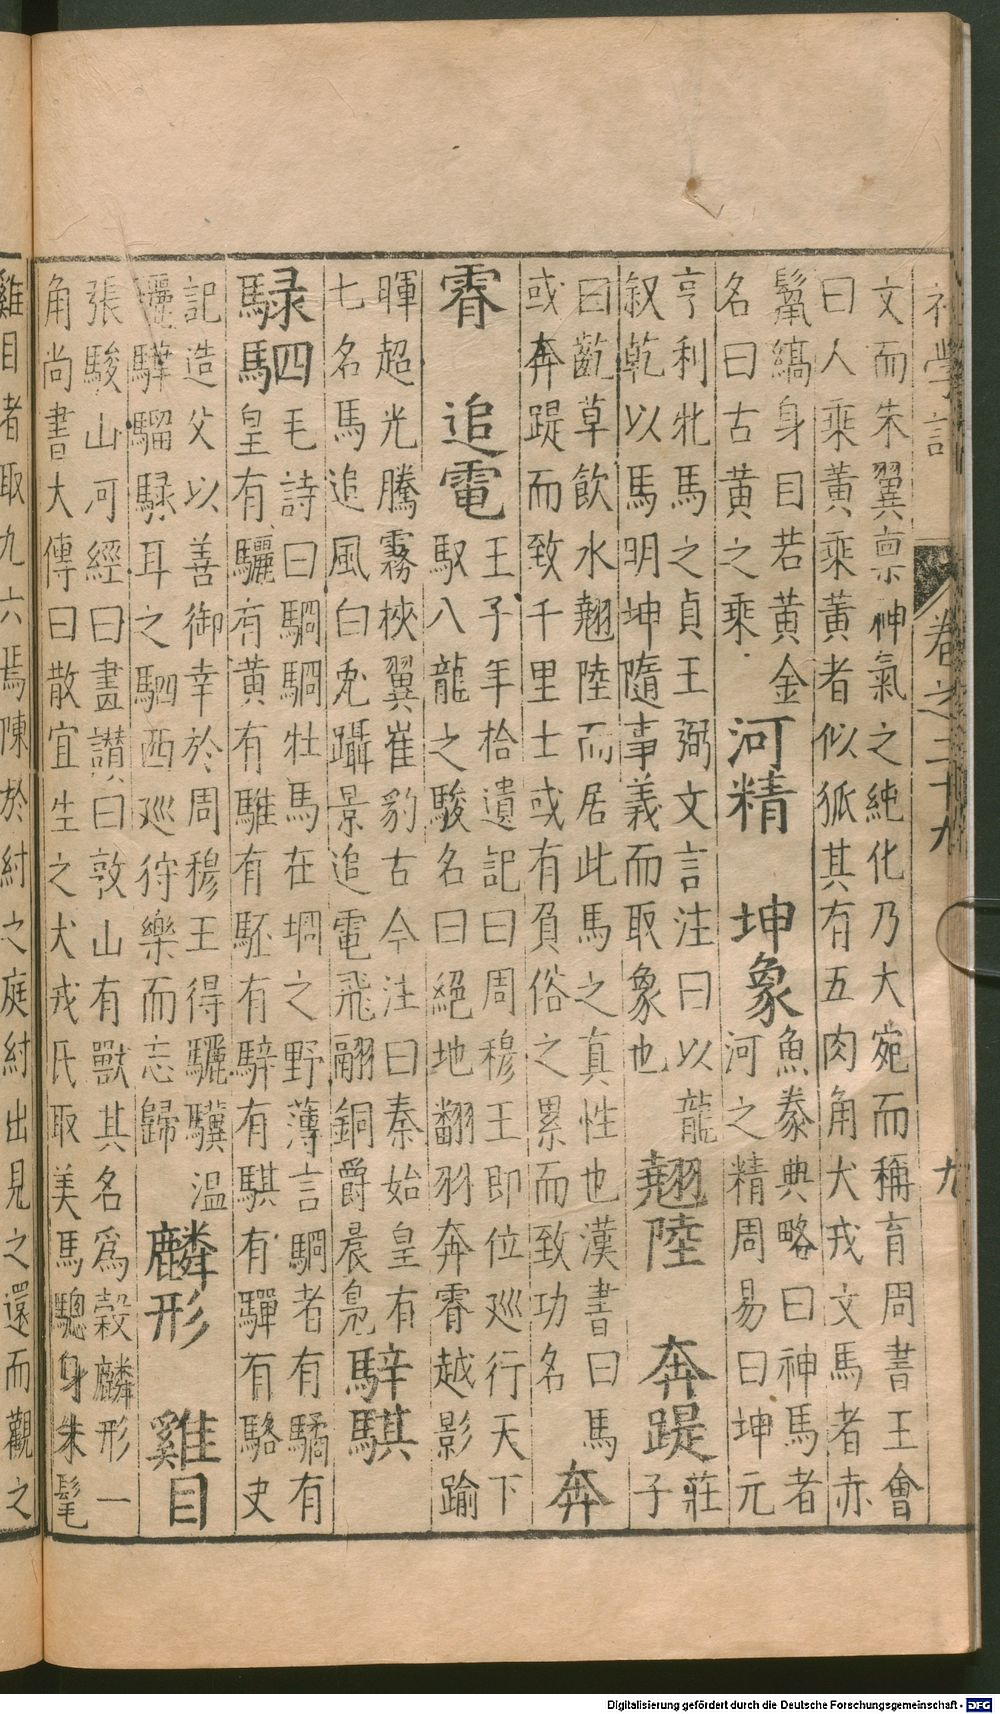 初學記 卷之二十九 九
文而朱翼禀神氣之純化乃大宛而稱育周書王會
曰人乘黃乘黃者似狐其有五肉角犬戎文馬者赤
鬣縞身目若黃金
名曰古黃之乘
河精 坤象
魚豢典略曰神馬者
河之精周易曰坤元
亨利牝馬之貞王弼文言注曰以龍
叙乾以馬明坤隨事義而取象也
翹陸 奔踶
莊
子
曰齕草飲水翹陸而居此馬之真性也漢書曰馬
或奔踶而致千里士或有負俗之累而致功名
奔
霄 追電
王子年拾遺記曰周穆王即位巡行天下
馭八龍之駿名曰絕地翻羽奔霄越影踰
暉超光騰霧挾翼崔豹古今注曰秦始皇有
七名馬追風白兔躡景追電飛翮銅爵晨鳧
騂騏
騄駟
毛詩曰駉駉牡馬在坰之野薄言駉者有驈有
皇有驪有黃有騅有駓有騂有騏有驒有駱史
記造父以善御幸於周穆王得驪驥溫
驪驊騮騄耳之駟西巡狩樂而忘歸
麟形 雞目
張駿山河經曰畫讃曰敦山有獸其名爲穀麟形一
角尚書大傳曰散宜生之犬戎氏取美馬驄身朱髦
雞目者取九六焉陳於紂之庭紂出見之還而觀之
Digitalisierung gefördert durch die Deutsche Forschungsgemeinschaft - DFG